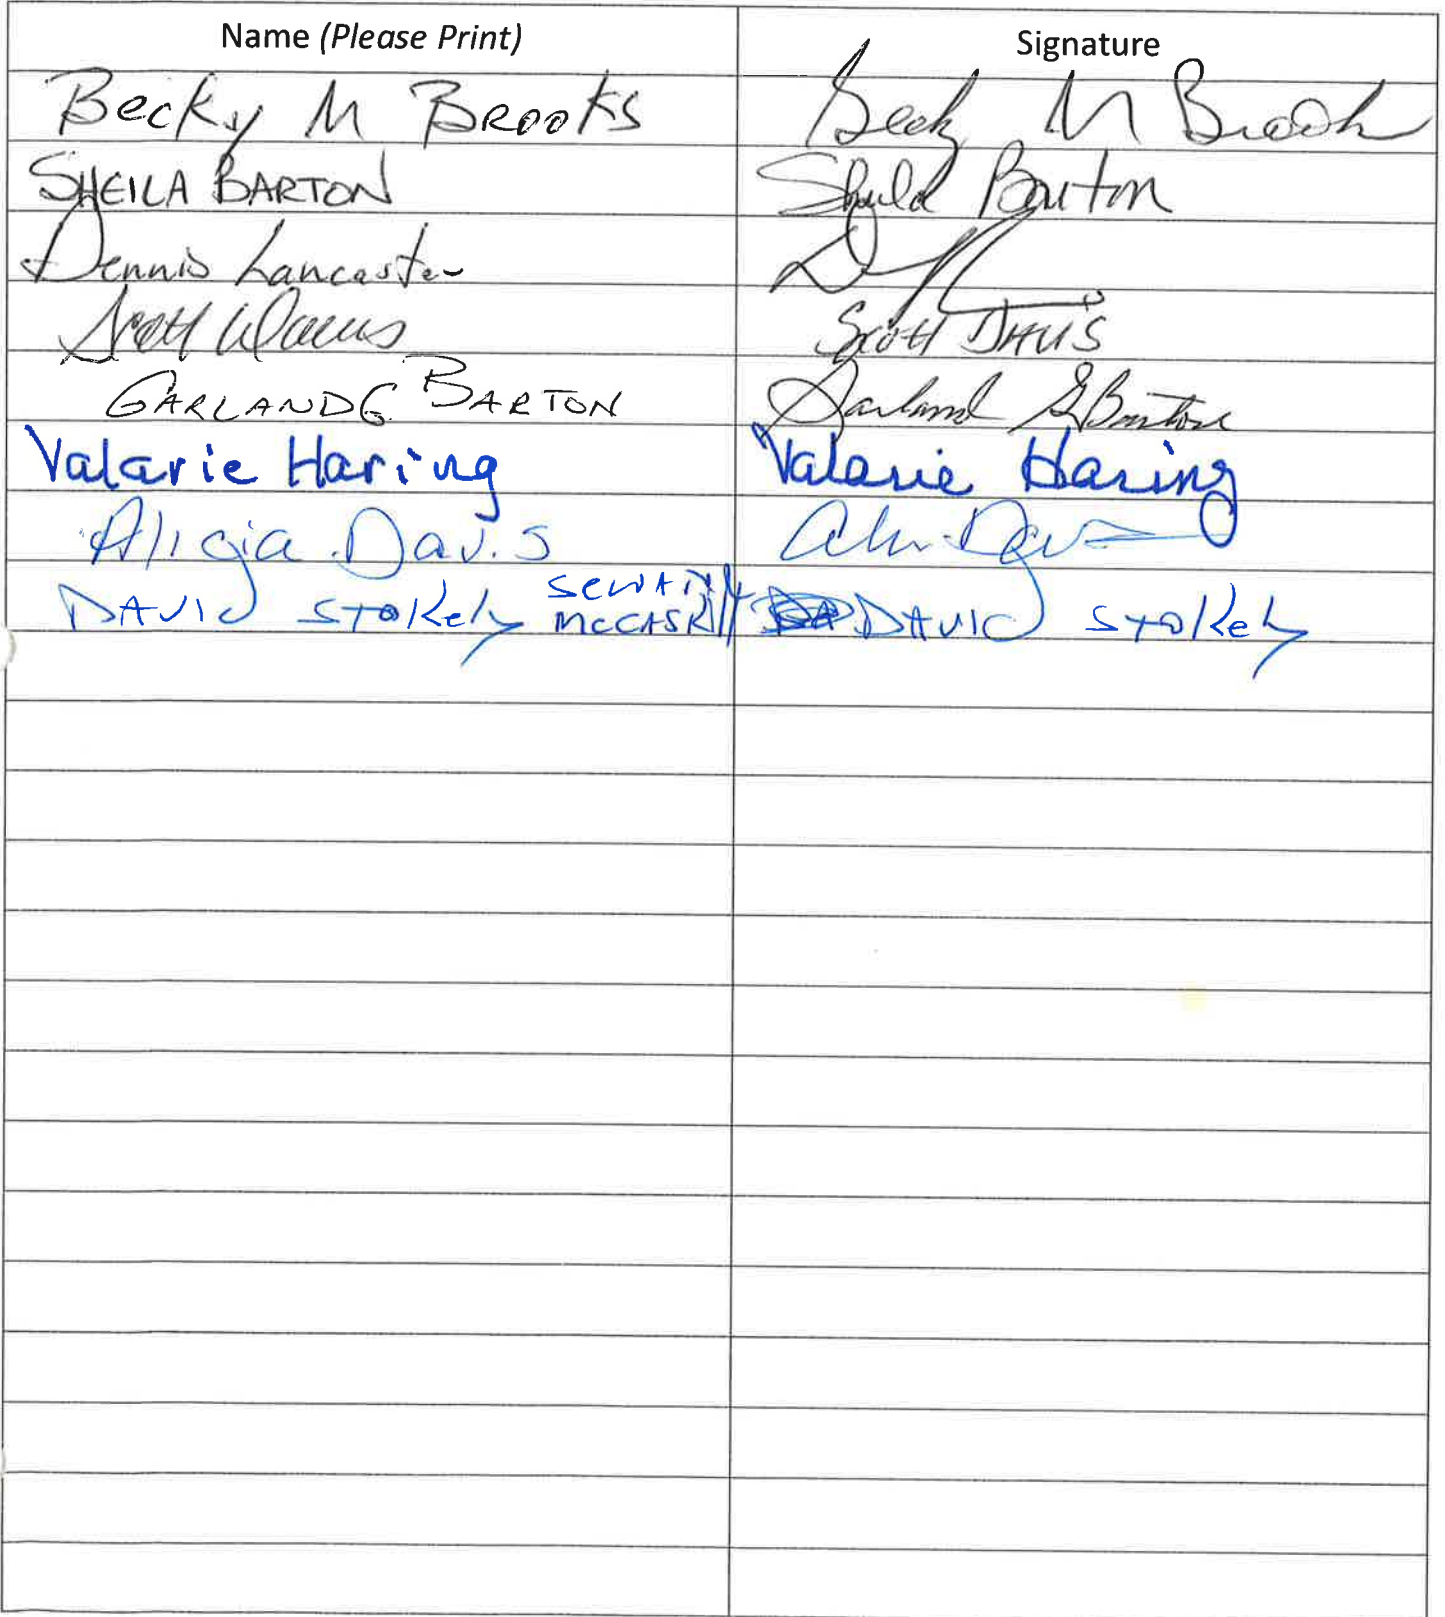 Name (Please Print) Signature
Becky M Brooks Becky M Brooks
SHEILA BARTON Sheila Barton
Dennis Lancaster
Scott W Davis Scott DAVIS
GARLAND G BARTON Garland G Barton
Valarie Haring Valarie Haring
Alicia Davis
DAVID Stokely Senator McCaskill DAVID Stokely